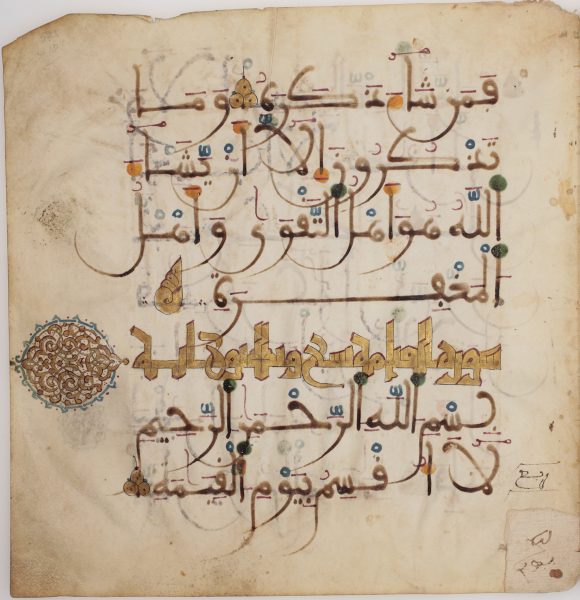 فمن شا ذكره وما
تذكرون الا ان يشا
الله هو اهل التقوى واهل
المغفرة
سورة القيامة تسع وثلاثون اية
بسم الله الرحمن الرحيم
لا اقسم بيوم القيمة